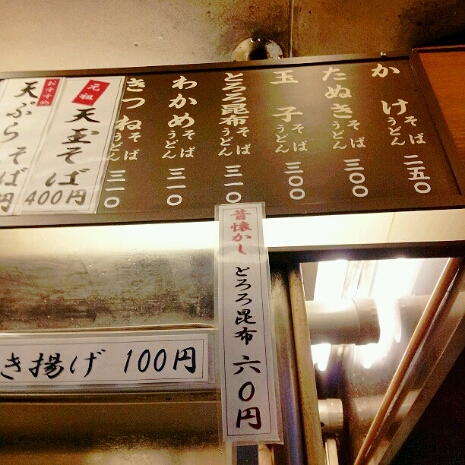 かけ そば うどん 二五〇
たぬき そば うどん 三〇〇
玉子 そば うどん 三〇〇
とろろ昆布 そば うどん 三一〇
わかめ そば うどん 三一〇
きつね そば うどん 三一〇
元祖 天玉そば 400円
おすすめ 天ぷらそば 円
昔懐かし とろろ昆布 六0円
き揚げ 100円